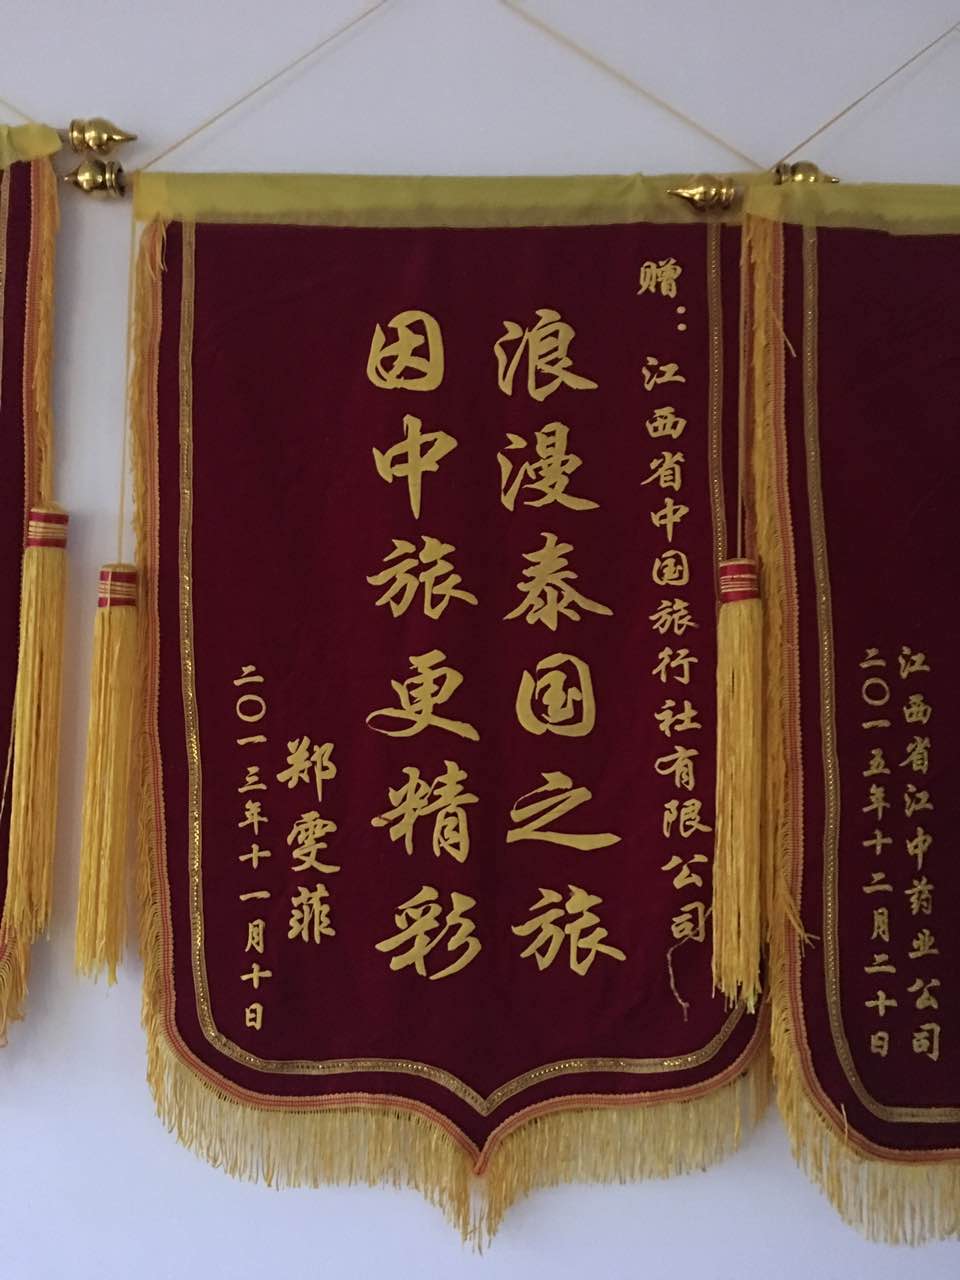 赠：江西省中国旅行社有限公司
浪漫泰国之旅
因中旅更精彩
郑雯菲
二〇一三年十一月十日
江西省江中药业公司
二〇一五年十二月二十日